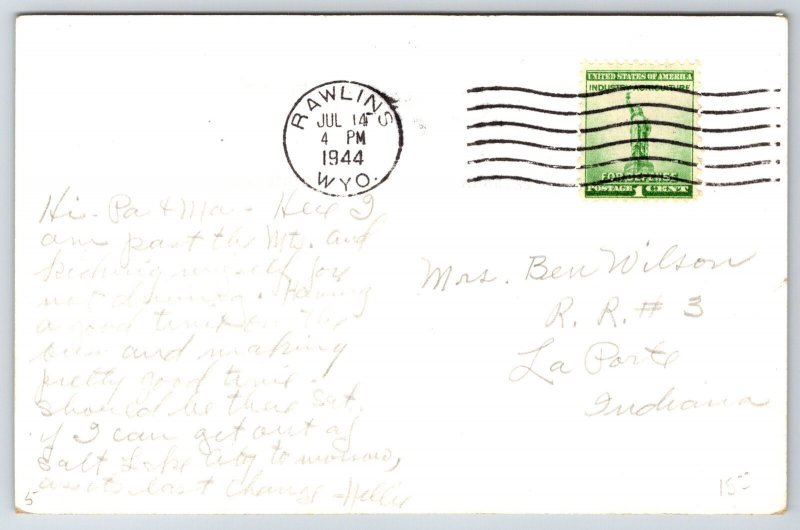 RAWLINS
JUL 14
4 PM
1944
WYO.
UNITED STATES OF AMERICA
INDUSTRY AGRICULTURE
FOR DEFENSE
POSTAGE 1 CENT
Hi - Pa & Ma - Here I
am past the Mt. and
kicking myself for
not driving. Having
a good time on the
and making
pretty good time.
Should be there Sat.
if I can get out of
Salt Lake City tomorrow,
as its last change -
Mrs. Ben Wilson
R. R. # 3
La Porte
Indiana
5
15